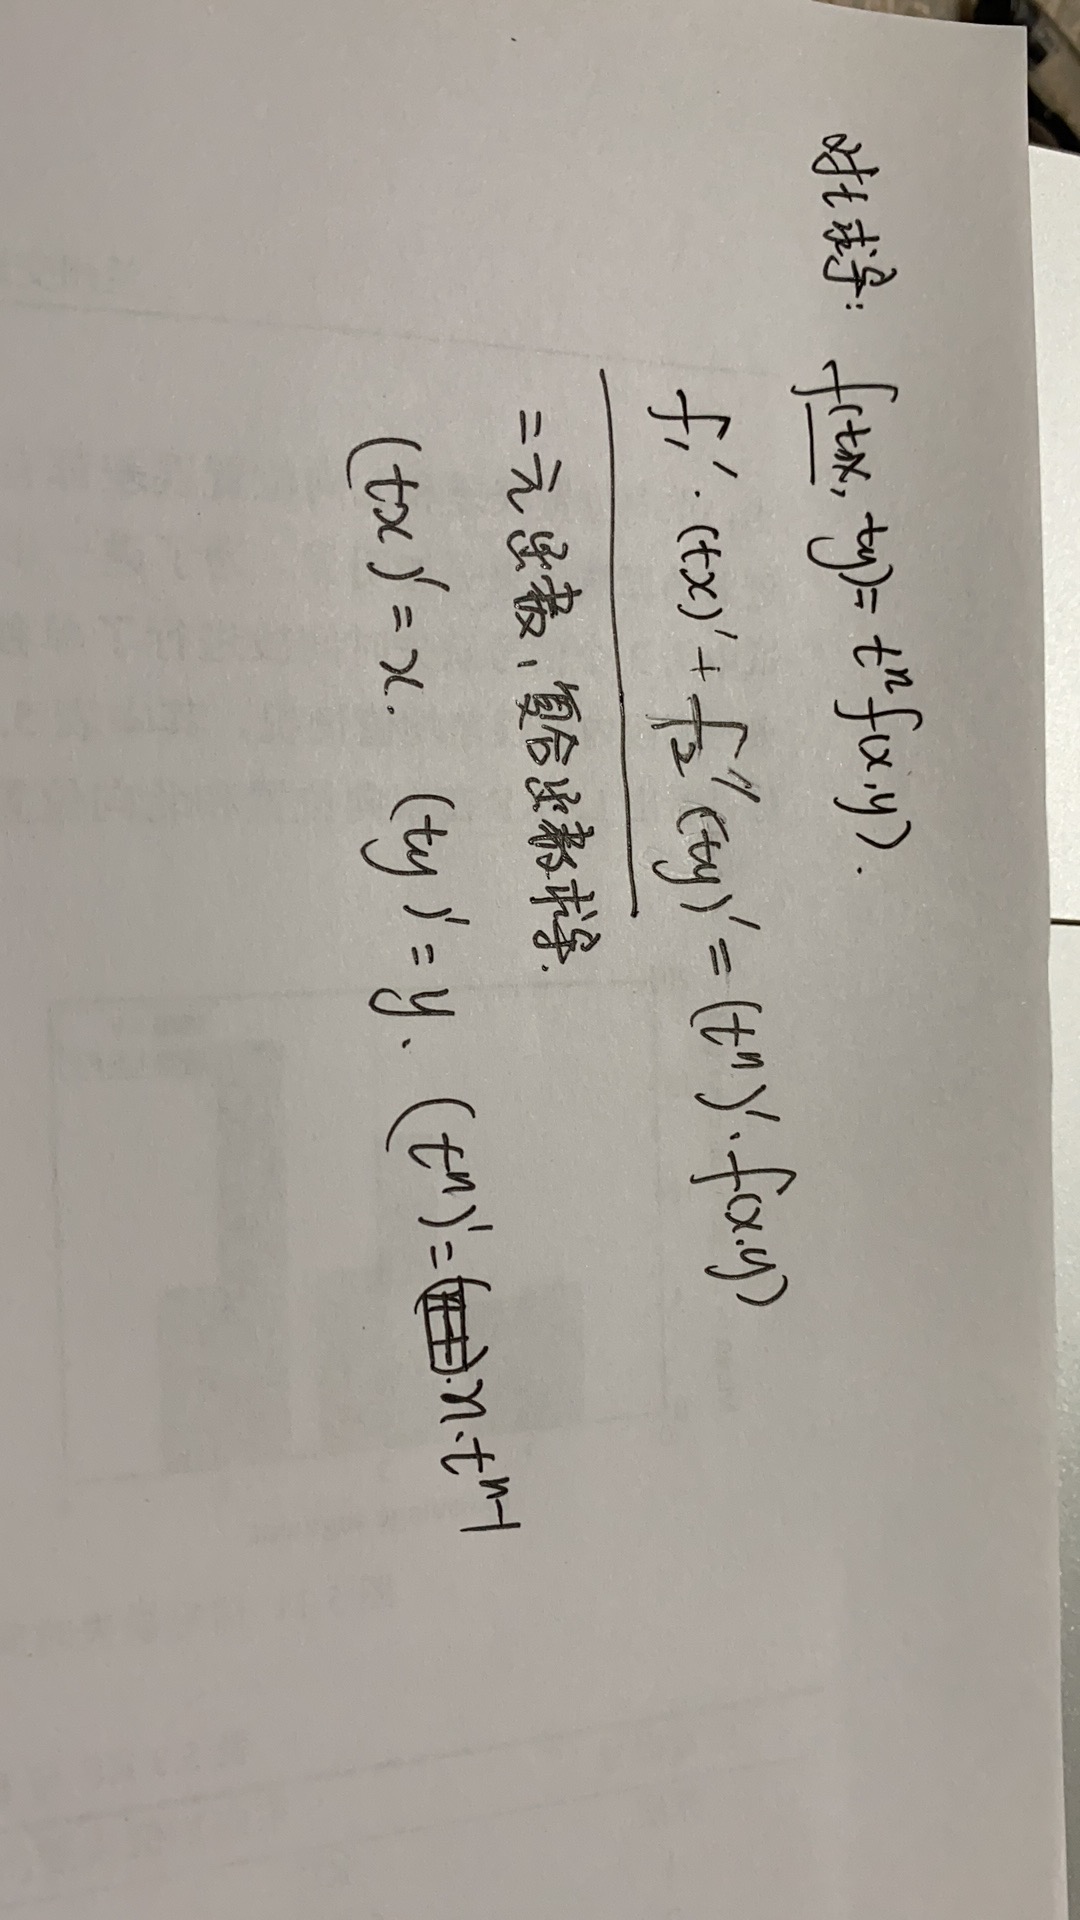 对t求导: f(tx, ty) = tⁿf(x,y).
f₁′·(tx)′ + f₂′(ty)′ = (tⁿ)′·f(x.y)
二元函数, 复合函数求导.
(tx)′ = x. (ty)′ = y. (tⁿ)′ = n·tⁿ⁻¹